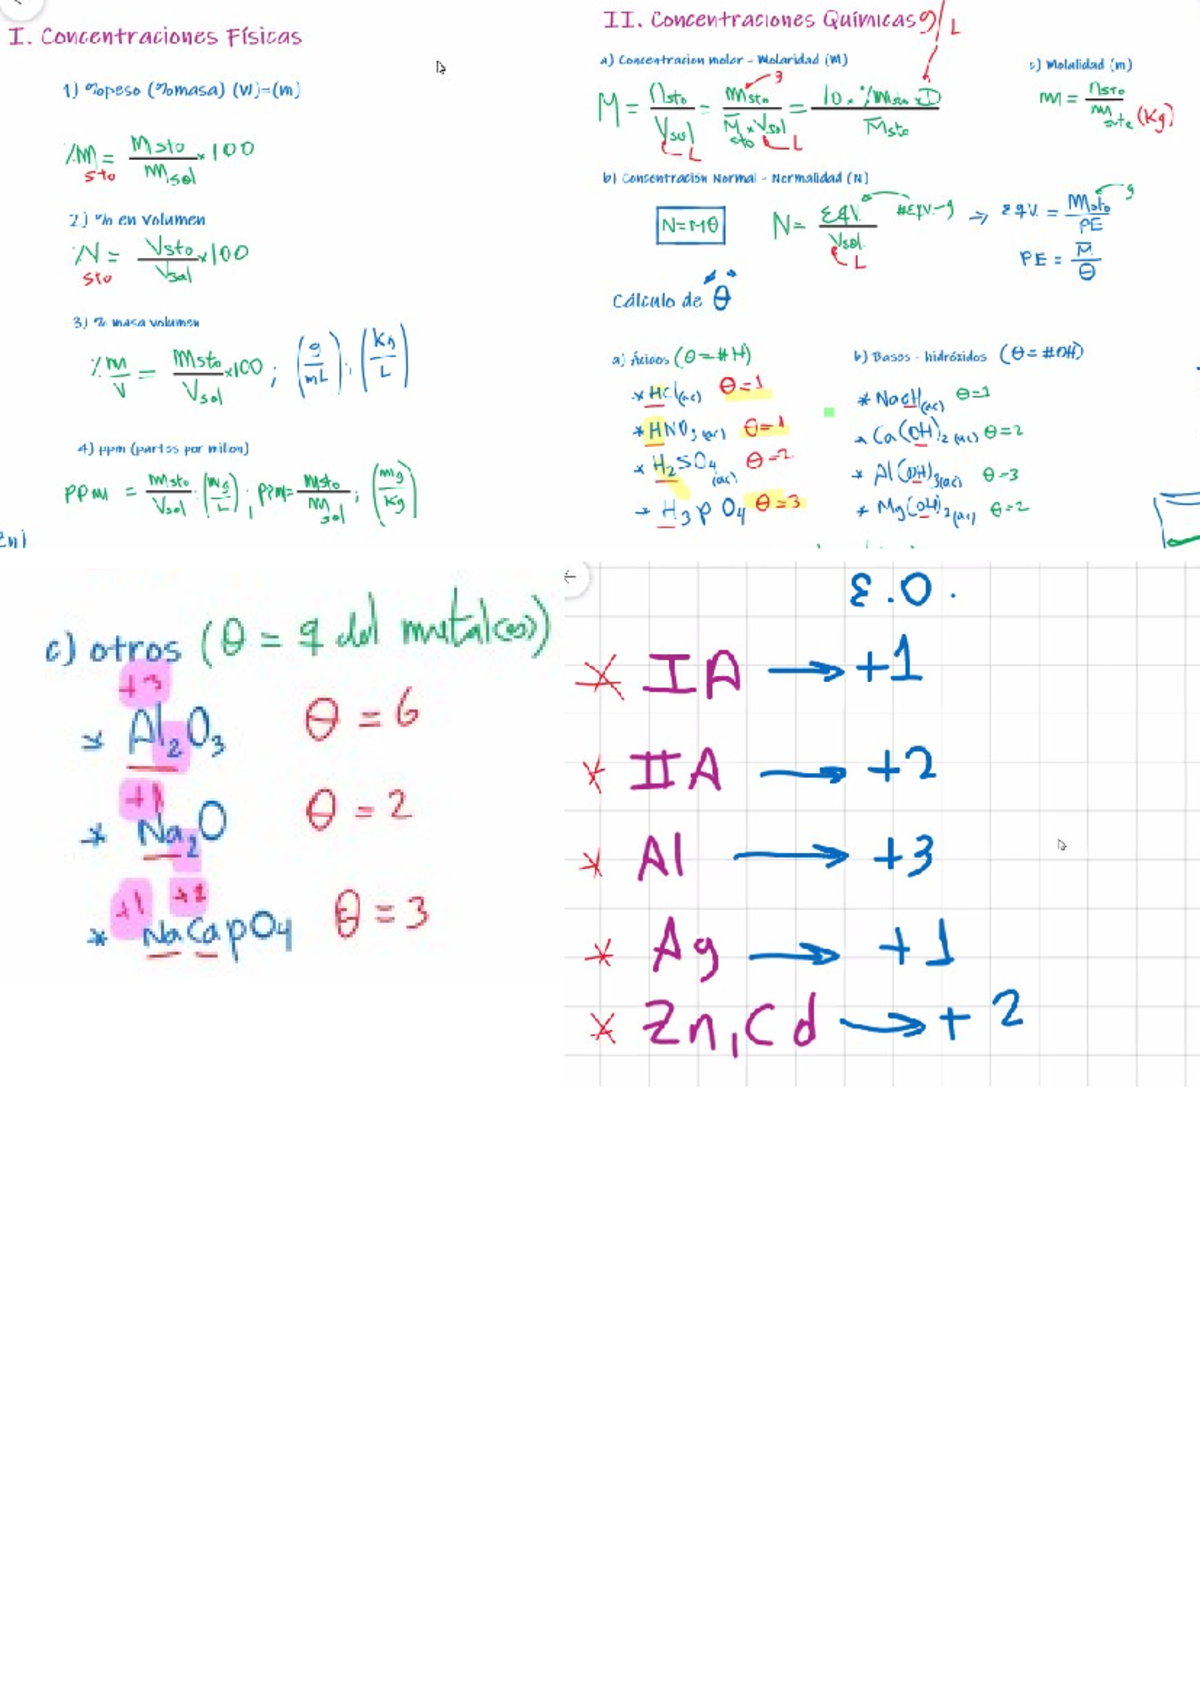 I. Concentraciones Físicas
1) %peso (%masa) (W)=(m)
%m sto = msto/msol × 100
2) % en Volumen
%V sto = Vsto/Vsol × 100
3) % masa volumen
%m/V = msto/Vsol × 100 ; (g/mL) ; (Kg/L)
4) ppm (partes por millon)
ppm = msto/Vsol ; (mg/L) ; ppm = msto/msol ; (mg/Kg)
Zn)
II. Concentraciones Químicas g/L
a) Concentración molar - Molaridad (M)
M = nsto/Vsol = msto/(M̅sto × Vsol) = 10 × %msto × D/M̅sto
g
L
L
b) Concentración Normal - Normalidad (N)
N=Mθ
N = Eqv./Vsol. #Eqv-g ⇒ Eqv. = msto/PE g
L
PE = M̅/θ
c) Molalidad (m)
m = nsto/mste (Kg)
Cálculo de θ
a) Ácidos (θ=#H)
* HCl(ac) θ=1
* HNO3(ac) θ=1
* H2SO4(ac) θ=2
* H3PO4 θ=3
b) Bases - hidróxidos (θ=#OH)
* NaOH(ac) θ=1
* Ca(OH)2(ac) θ=2
* Al(OH)3(ac) θ=3
* Mg(OH)2(ac) θ=2
c) otros (θ = q del metal(es))
+3
* Al2O3 θ = 6
+1
* Na2O θ = 2
+1 +2
* NaCaPO4 θ = 3
E.O.
* IA → +1
* IIA → +2
* Al → +3
* Ag → +1
* Zn, Cd → +2